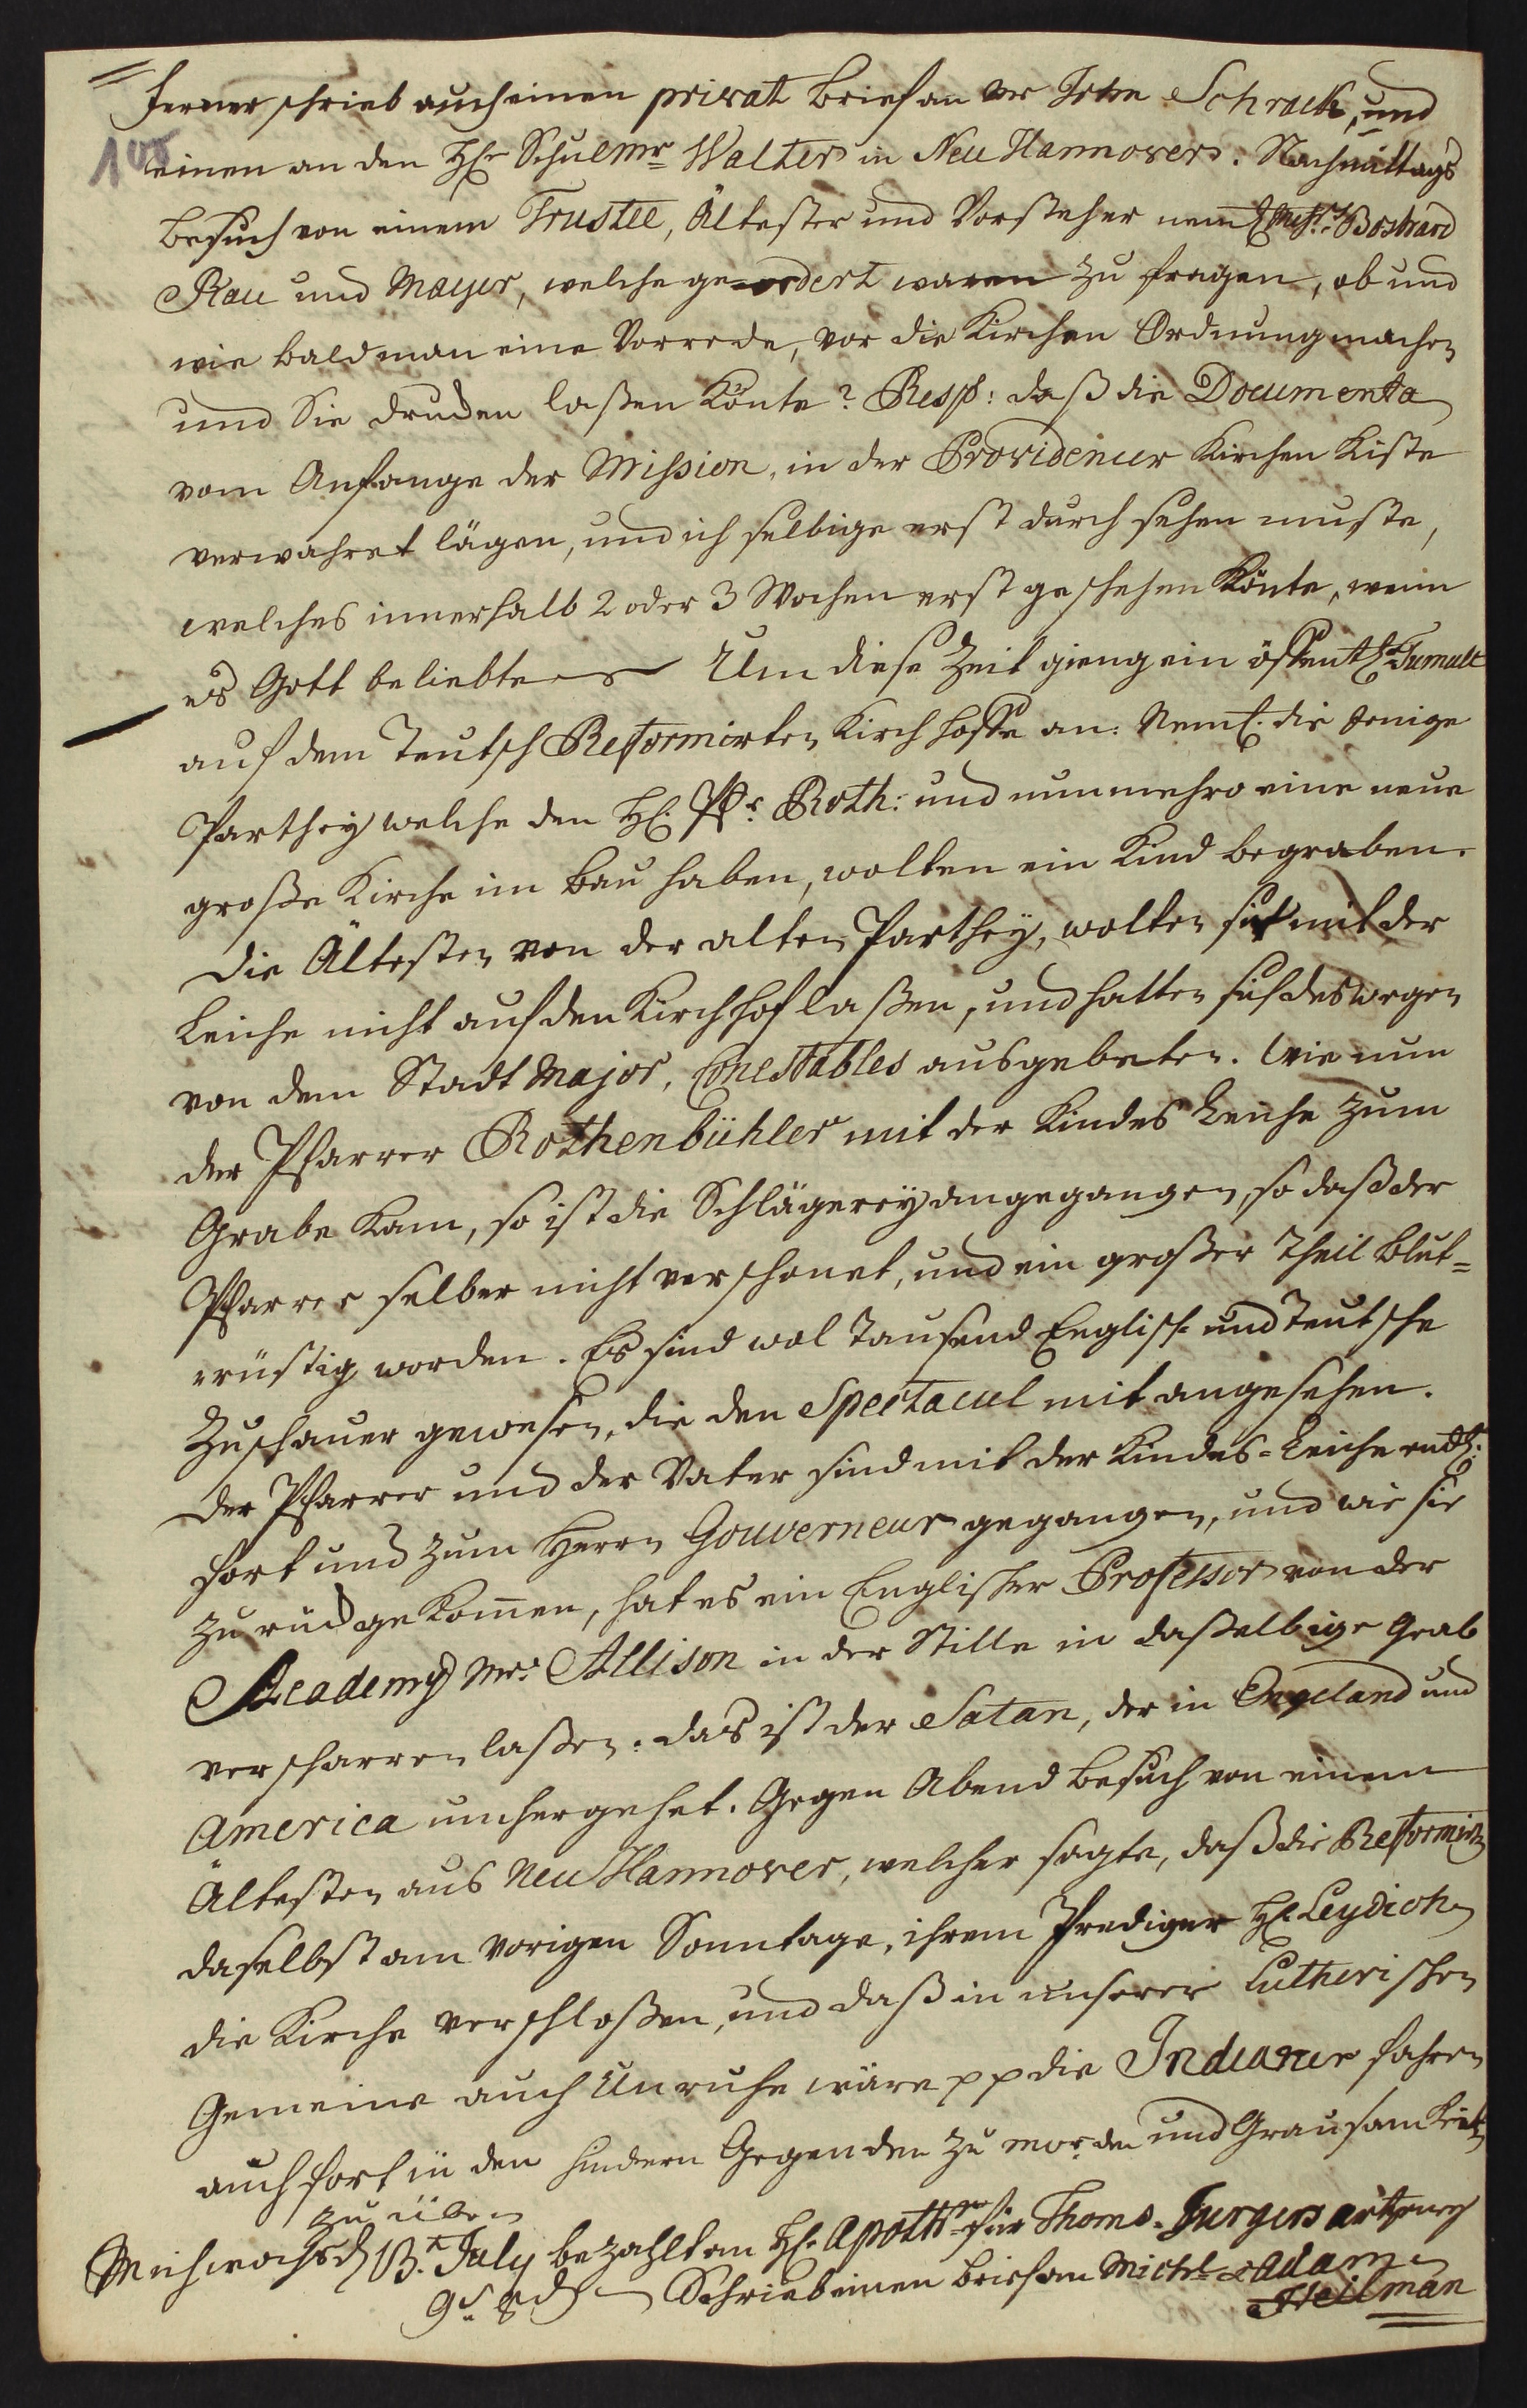 ferner schrieb auch einen privat Brief an Mr John Schrack, und
105
einen an den HE Schulmr Walter in Neu Hannover. Nachmittags
Besuch von einem Trustee, Ältester und Vorsteher neml
Rau und Mayer, welche geordert waren zu fragen, ob und
wie bald man eine Vorrede, vor die Kirchen Ordnung machen
und Sie drucken laßen könte? Resp: daß die Documenta
vom Anfange der Mission, in der Providencer Kirchen Kiste
verwahret lägen, und ich selbige erst durch sehen muste,
welches innerhalb 2 oder 3 Wochen erst geschehen könte, wenn
es Gott beliebte. Um diese Zeit gieng ein öffentl. Tumult
auf dem Teutsch Reformirten Kirch hoffe an: Neml. die jenige
Parthey welche den HE. Pfr. Roth: und nunmehro eine neue
große Kirche im Bau haben, wolten ein Kind begraben.
Die Ältesten von der alten Parthey, wolten sie mit der
Leiche nicht auf den Kirchhof laßen, und hatten sich deswegen
von dem Stadt Major, Conestables ausgebeten. Wie nun
der Pfarrer Rothenbühler mit der Kindes Leiche zum
Grabe kam, so ist die Schlägerey angegangen, so daß der
Pfarrer selber nicht verschonet, und ein großer Theil blut=
rüstig worden. Es sind wol Tausend Englisch und Teutsche
Zuschauer gewesen, die den Spectacul mit angesehen.
Der Pfarrer und der Vater sind mit der Kindes-Leiche endl.
fort und zum Herrn Gouverneur gegangen, und wie sie
zurück gekommen, hat es ein Englischer Professor von der
Academy Mr. Allison in der Stille in daßelbige Grab
verscharren laßen. Das ist der Satan, der in Engeland und
America umhergehet. Gegen Abend Besuch von einem
Ältesten aus Neu Hannover, welcher sagte, daß die Reformirten
daselbst am vorigen Sonntage, ihrem Prediger HE. Leydich
die Kirche verschloßen, und daß in unserer Lutherischen
Gemeine auch Unruhe wäre pp die Indianer fahren
auch fort in den hindern Gegenden zu morden und Grausamkeit
zu üben
Mitwochs d 13.t July bezahlt an HE. Apoth für Thoms. Jurgens artzeney
9s. 8d Schrieb einen Brief an Michl Adam
Heilman